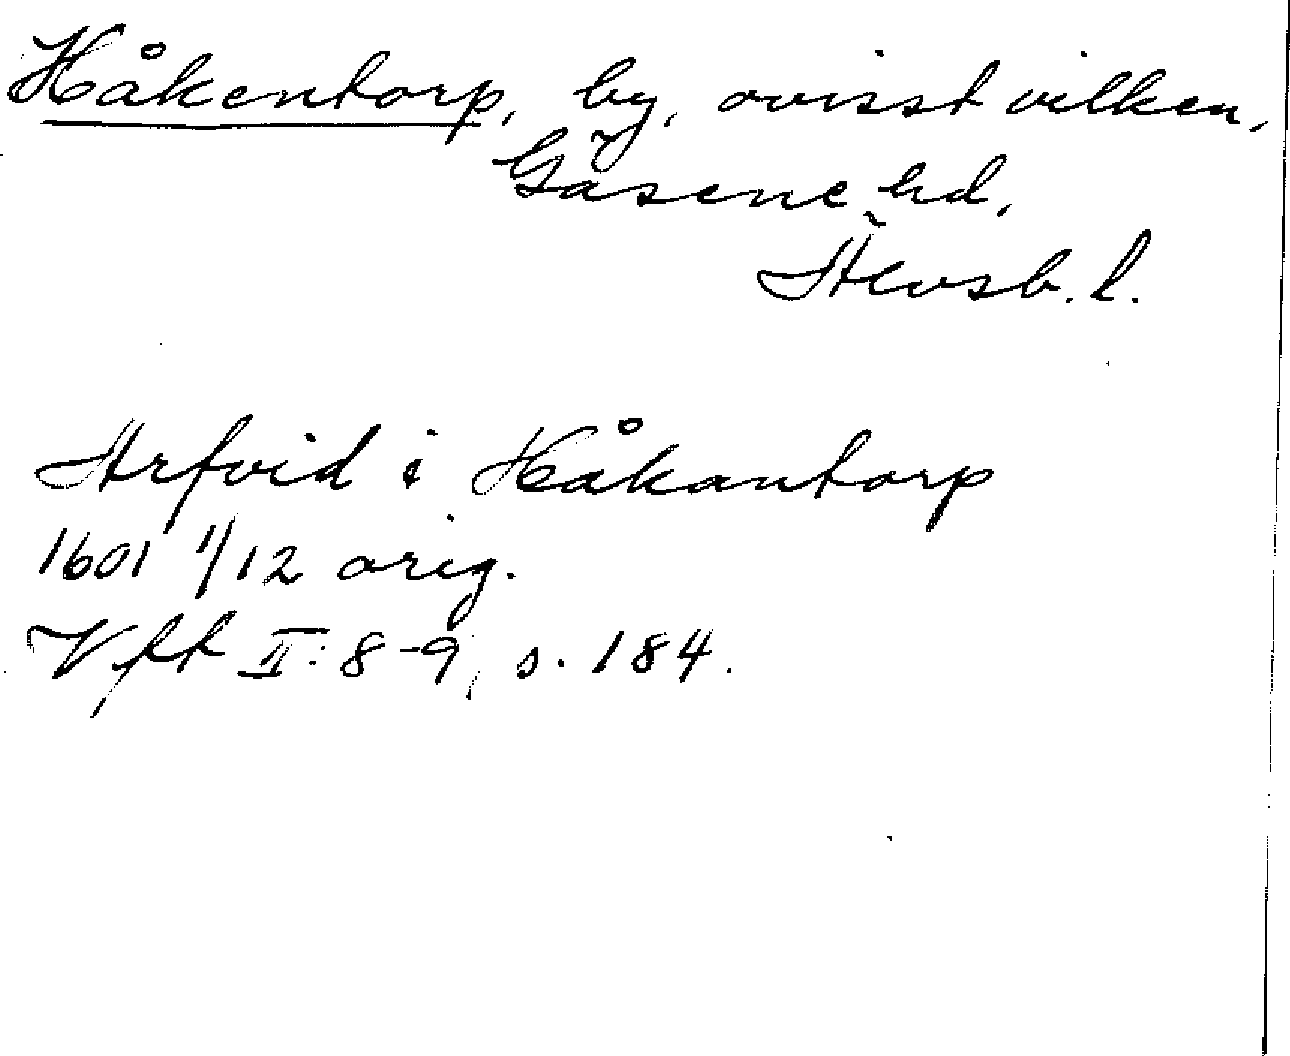 Håkentorp, by, ovisst vilken,
Gäsene hd,
Älvsb. l.
Arfvid i Håkantorp
1601 1/12 orig.
Vfft II: 8-9, s. 184.